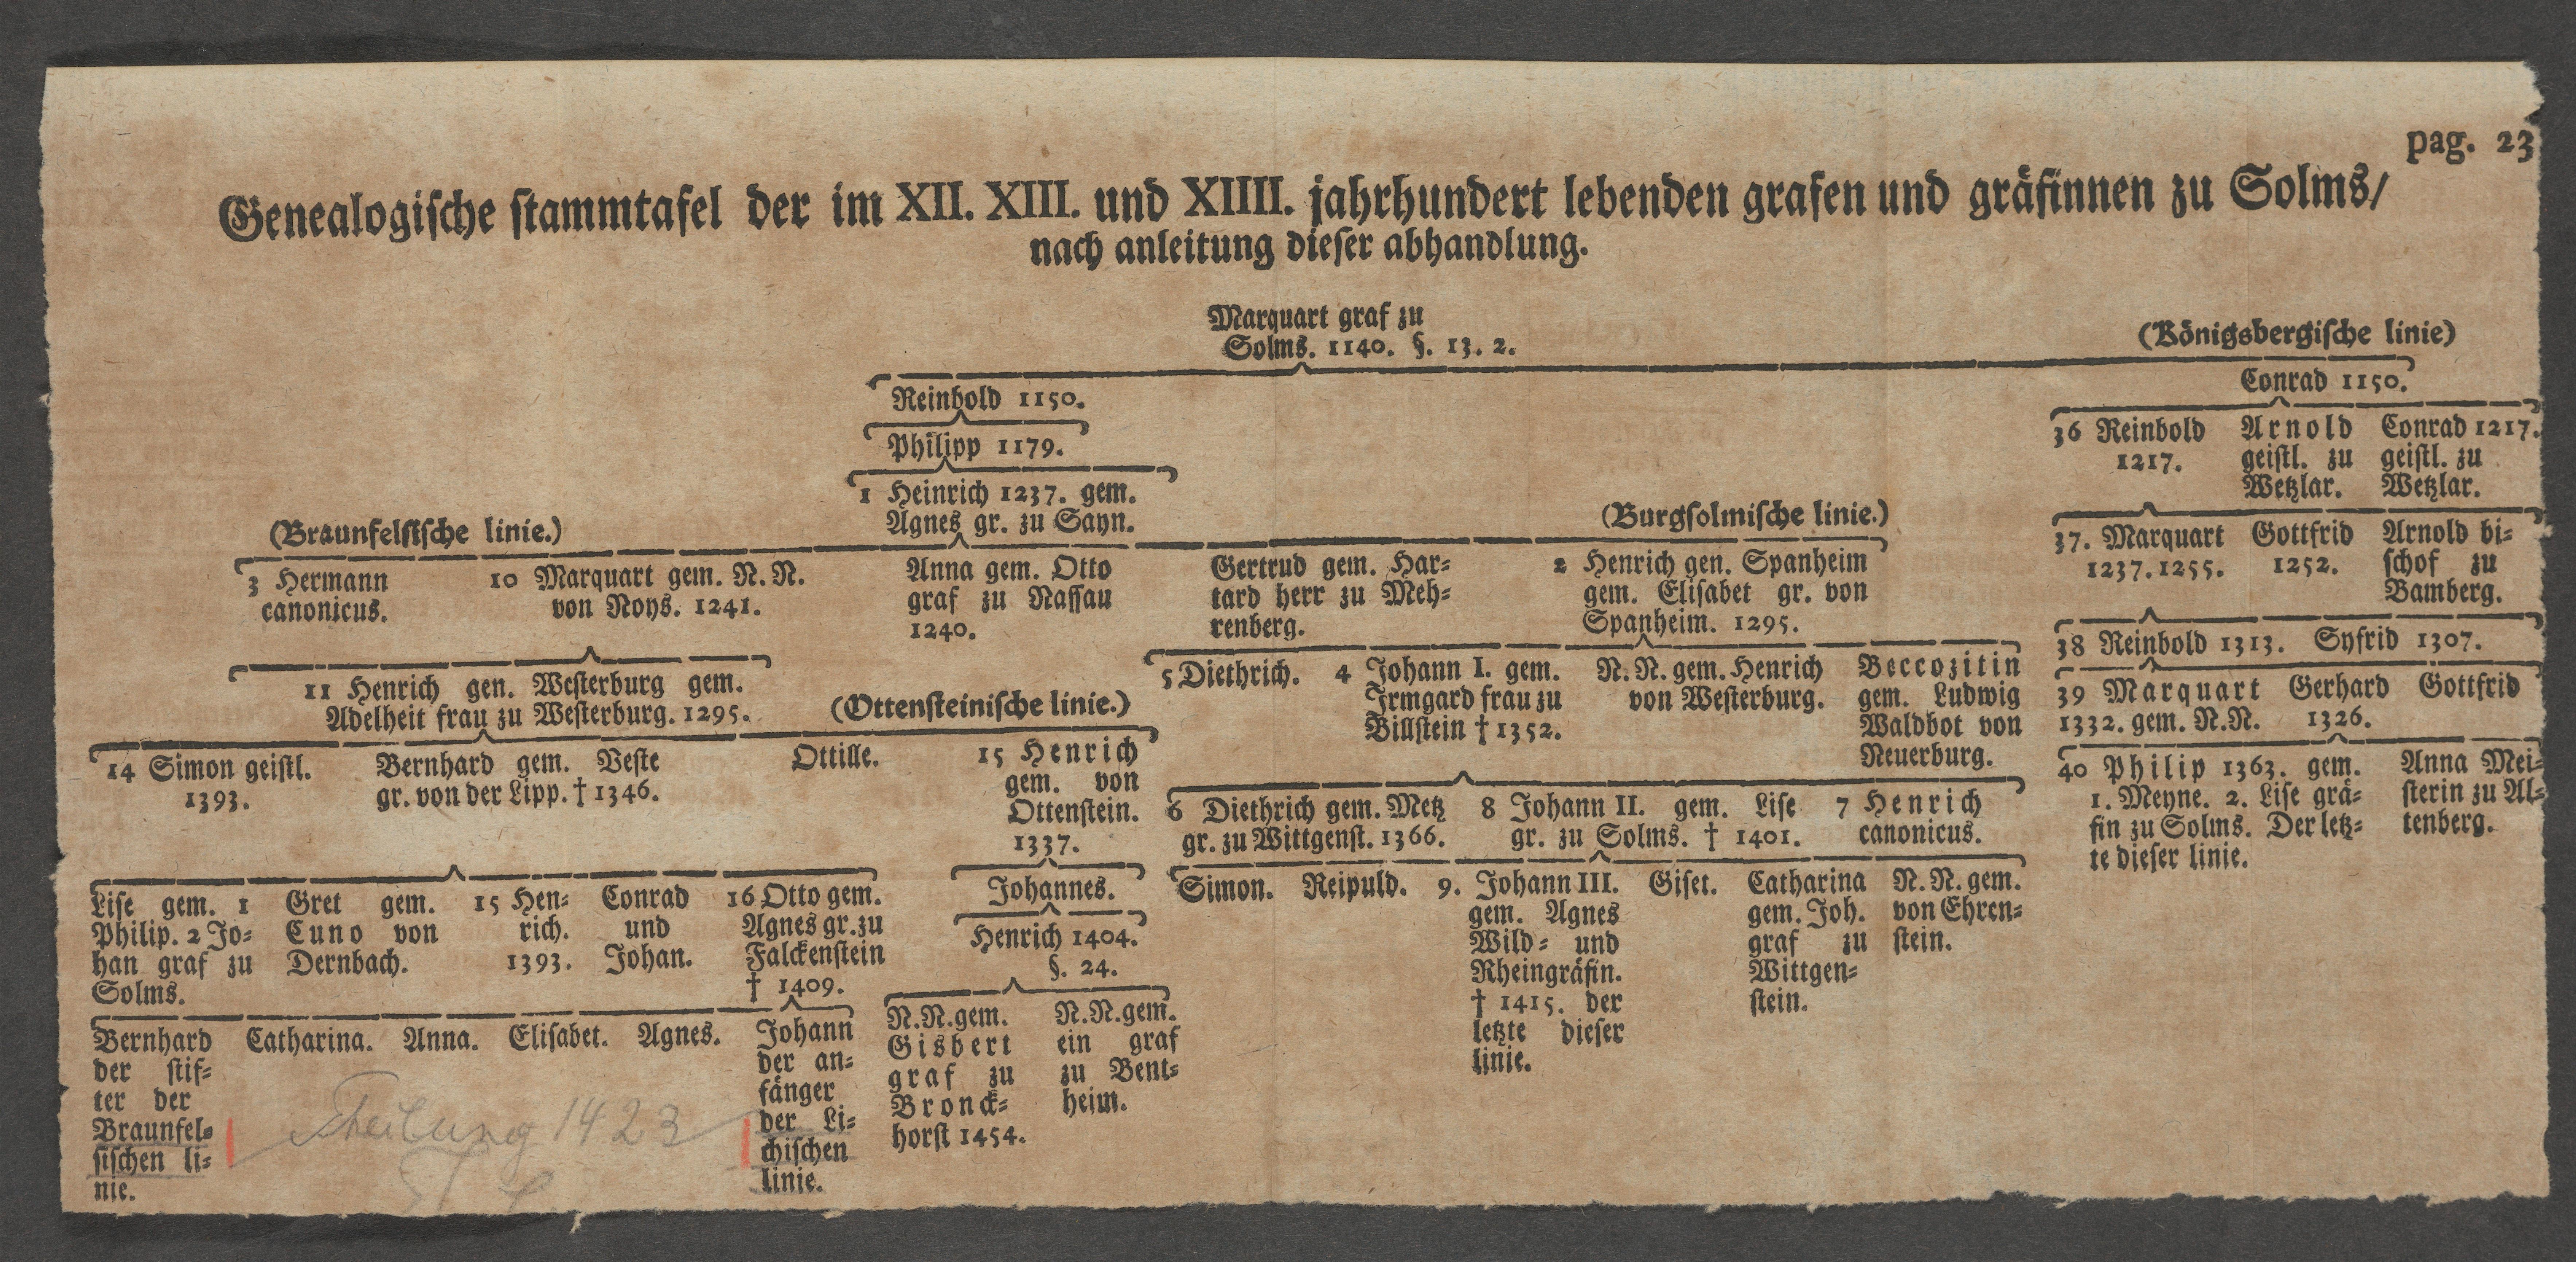 pag. 23
Genealogische stammtafel der im XII. XIII. und XIIII. jahrhundert lebenden grafen und gräfinnen zu Solms/
nach anleitung dieser abhandlung.
Marquart graf zu
Solms. 1140. §. 13. 2.
(Königsbergische linie)
Reinbold 1150.
Conrad 1150.
Philipp 1179.
36 Reinbold
1217.
Arnold
geistl. zu
Wetzlar.
Conrad 1217.
geistl. zu
Wetzlar.
1 Heinrich 1237. gem.
Agnes gr. zu Sayn.
(Braunfelsische linie.)
(Burgsolmische linie.)
37. Marquart
1237. 1255.
Gottfrid
1252.
Arnold bi=
schof zu
Bamberg.
3 Hermann
canonicus.
10 Marquart gem. N. N.
von Noys. 1241.
Anna gem. Otto
graf zu Nassau
1240.
Gertrud gem. Har=
tard herr zu Meh=
renberg.
2 Henrich gen. Spanheim
gem. Elisabet gr. von
Spanheim. 1295.
38 Reinbold 1313. Syfrid 1307.
11 Henrich gen. Westerburg gem.
Adelheit frau zu Westerburg. 1295.
(Ottensteinische linie.)
5 Diethrich.
4 Johann I. gem.
Irmgard frau zu
Billstein † 1352.
N. N. gem. Henrich
von Westerburg.
Beccozitin
gem. Ludwig
Waldbot von
Neuerburg.
39 Marquart
1332. gem. N. N.
Gerhard
1326.
Gottfrid
14 Simon geistl.
1393.
Bernhard gem. Veste
gr. von der Lipp. † 1346.
Ottille.
15 Henrich
gem. von
Ottenstein.
1337.
6 Diethrich gem. Metz
gr. zu Wittgenst. 1366.
8 Johann II. gem. Lise
gr. zu Solms. † 1401.
7 Henrich
canonicus.
40 Philip 1363. gem.
1. Meyne. 2. Lise grä=
fin zu Solms. Der letz=
te dieser linie.
Anna Mei=
sterin zu Al=
tenberg.
Lise gem. 1
Philip. 2 Jo=
han graf zu
Solms.
Gret gem.
Cuno von
Dernbach.
15 Hen=
rich.
1393.
Conrad
und
Johan.
16 Otto gem.
Agnes gr. zu
Falckenstein
† 1409.
Johannes.
Henrich 1404.
§. 24.
Simon.
Reipuld.
9. Johann III.
gem. Agnes
Wild= und
Rheingräfin.
† 1415. der
letzte dieser
linie.
Giset.
Catharina
gem. Joh.
graf zu
Wittgen=
stein.
N. N. gem.
von Ehren=
stein.
Bernhard
der stif=
ter der
Braunfel=
sischen li=
nie.
Catharina.
Anna.
Elisabet.
Agnes.
Johann
der an=
fänger
der Li=
chischen
linie.
N. N. gem.
Gisbert
graf zu
Bronck=
horst 1454.
N. N. gem.
ein graf
zu Bent=
heim.
Theilung 1423